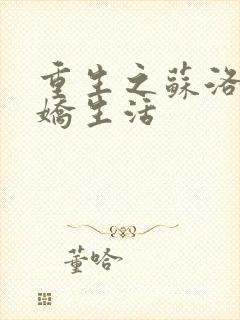 重生之蘇洛
嬌生活
董哈